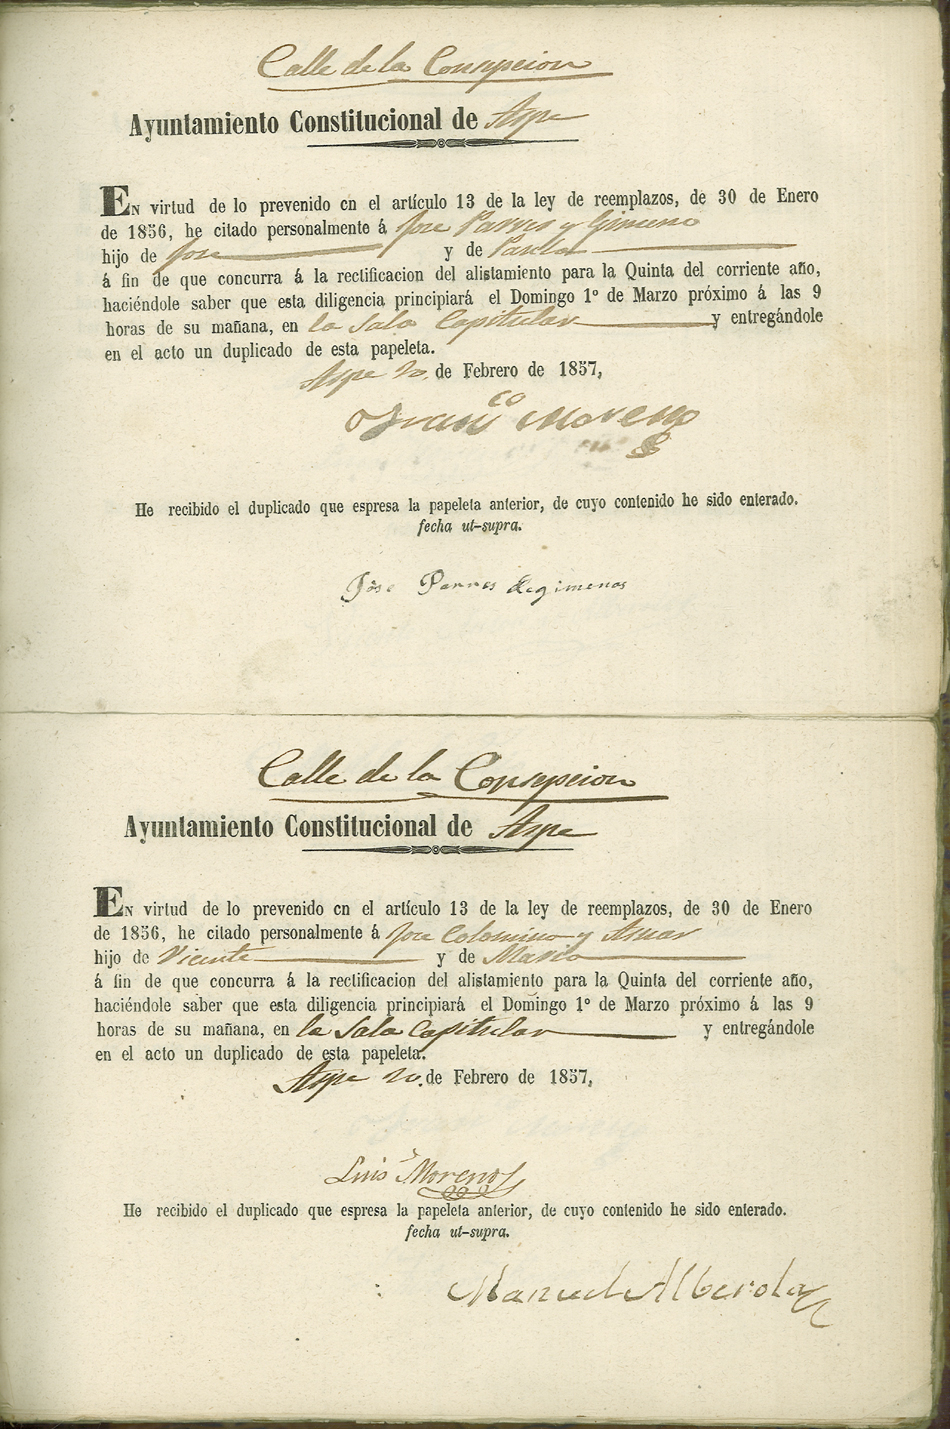 Calle de la Consepcion
Ayuntamiento Constitucional de Aspe
En virtud de lo prevenido en el artículo 13 de la ley de reemplazos, de 30 de Enero
de 1856, he citado personalmente á Jose Parres y Gimeno
hijo de Jose y de Paula
á fin de que concurra á la rectificacion del alistamiento para la Quinta del corriente año,
haciéndole saber que esta diligencia principiará el Domingo 1º de Marzo próximo á las 9
horas de su mañana, en la Sala Capitular y entregándole
en el acto un duplicado de esta papeleta.
Aspe 20 de Febrero de 1857,
Franco Moreno
He recibido el duplicado que espresa la papeleta anterior, de cuyo contenido he sido enterado.
fecha ut-supra.
Jose Parres degimenos
Calle de la Consepcion
Ayuntamiento Constitucional de Aspe
En virtud de lo prevenido en el artículo 13 de la ley de reemplazos, de 30 de Enero
de 1856, he citado personalmente á Jose Colomino y Amar
hijo de Vicente y de Maria
á fin de que concurra á la rectificacion del alistamiento para la Quinta del corriente año,
haciéndole saber que esta diligencia principiará el Domingo 1º de Marzo próximo á las 9
horas de su mañana, en la Sala Capitular y entregándole
en el acto un duplicado de esta papeleta.
Aspe 20 de Febrero de 1857,
Luis Moreno
He recibido el duplicado que espresa la papeleta anterior, de cuyo contenido he sido enterado.
fecha ut-supra.
Manuel Alberola